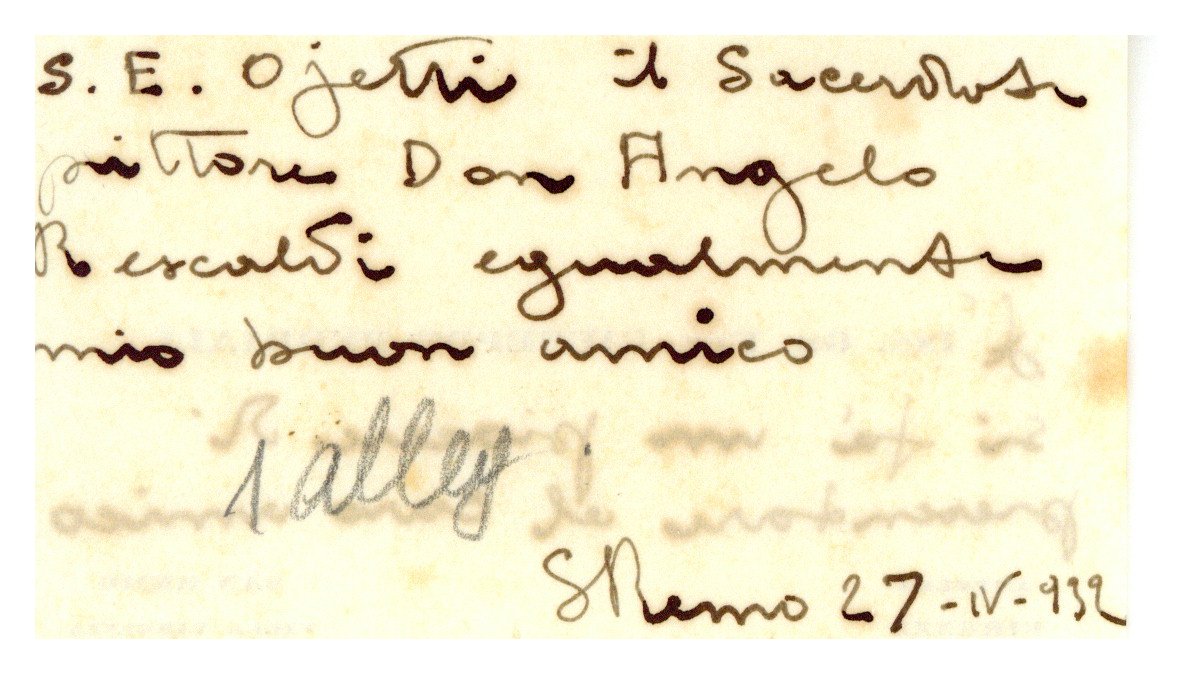 S. E. Ojetti il Sacerdote
pittore Don Angelo
Rescaldi egualmente
mio buon amico
S Remo 27-IV-932